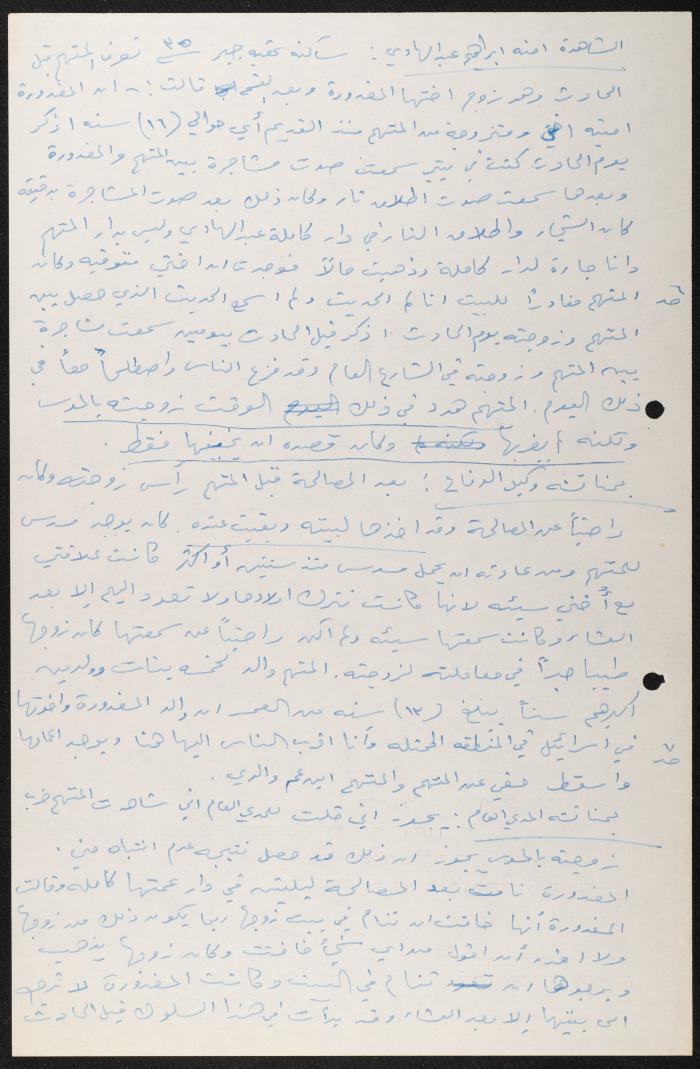 الشاهدة امنه ابراهيم عبدالهادي : ساكنة عقبه جبر ٣٥ سنه تعرف المتهم قبل
الحادث وهو زوج اختها المغدورة وبعد القسم قالت : - ان المغدورة
امينه اختي ومتزوجة من المتهم منذ القديم أي حوالي (١٦) سنه اذكر
يوم الحادث كنت في بيتي سمعت صوت مشاجرة بين المتهم والمغدورة
وبعدها سمعت صوت اطلاق نار وكان ذلك بعد صوت المشاجرة بدقيقه
كان الشجار واطلاق النار في دار كاملة عبدالهادي وليس بدار المتهم
وانا جارة لدار كاملة وذهبت حالاً فوجدت ان اختي متوفيه وكان
المتهم مغادراً للبيت انا لم الحديث ولم اسمع الحديث الذي حصل بين
المتهم وزوجته يوم الحادث . اذكر قبل الحادث بيومين سمعت مشاجرة
بين المتهم وزوجته في الشارع العام وقد فزع الناس واصطلحا معاً في
ذلك اليوم . المتهم هدد في ذلك اليوم الوقت زوجته بالموس
ولكنه لم يضربها ولكنه وكان قصده ان يخيفها فقط .
بمناقشة وكيل الدفاع : بعد المصالحة قبل المتهم رأس زوجته وكان
راضياً عن المصالحة وقد اخذها لبيته وبقيت عنده . كان يوجد مسدس
للمتهم ومن عادته ان يحمل مسدس منذ سنتين أو اكثر كانت علاقتي
مع أختي سيئه لانها كانت تترك اولادها ولا تعود اليهم إلا بعد
العشاء وكانت سمعتها سيئه ولم اكن راضيتاً عن سمعتها كان زوجها
طيبا جداً في معاملته لزوجته . المتهم والد لخمسه بنات وولدين
أكبرهم سناً يبلغ (١٣) سنه من العمر ان والد المغدورة واخوتها
في اسرائيل في المنطقه المحتله وأنا اقرب الناس اليها هنا ويوجد اعمامها
واسقط حقي عن المتهم والمتهم ابن عم والدي .
بمناقشة المدعي العام : يجوز اني قلت للمدعي العام اني شاهدت المتهم ضرب
زوجته بالموس يجوز ان ذلك قد حصل نتيجه عدم انتباه مني .
المغدورة نامت بعد المصالحة ليلتين في دار عمتها كامله وقالت
المغدورة أنها خافت ان تنام في بيت زوجها ربما يكون ذلك من زوجها
ولا اقدر أن اقول من اي شيء خافت وكان زوجها يذهب
ويرجوها ان تعود تنام في البيت وكانت المغدورة لا ترجع
الى بيتها إلا بعد العشاء وقد بدأت في هذا السلوك قبل الحادث